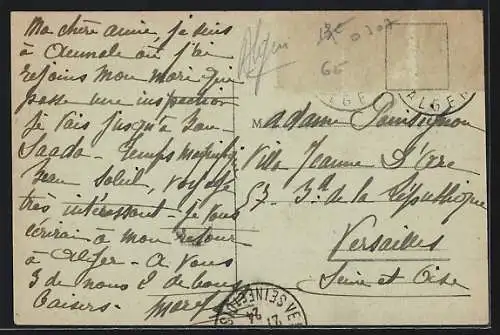 Ma chère amie, je suis
à Aumale où j'ai
rejoins mon mari que
passe une inspection
je vais jusqu'à Bou
Saada - Temps magnifique
beau soleil, voyage
très intéressant - je vous
écrirai à mon retour
à Alger - à vous
3 de nous 2 de bons
baisers
Alger
0 207
65
ALGER
Madame
Villa Jeanne d'Arc
57 Bd de la République
Versailles
Seine et Oise